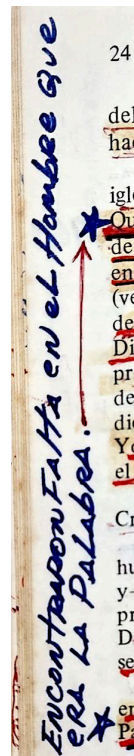 ENCONTRARON FALTA EN EL HOMBRE QUE
ERA LA PALABRA.
24
del
hac
igle
Qu
de
en
(ve
de
Di
pr
de
dic
Yo
el
Cr
hu
y-
pr
D
se
en
P